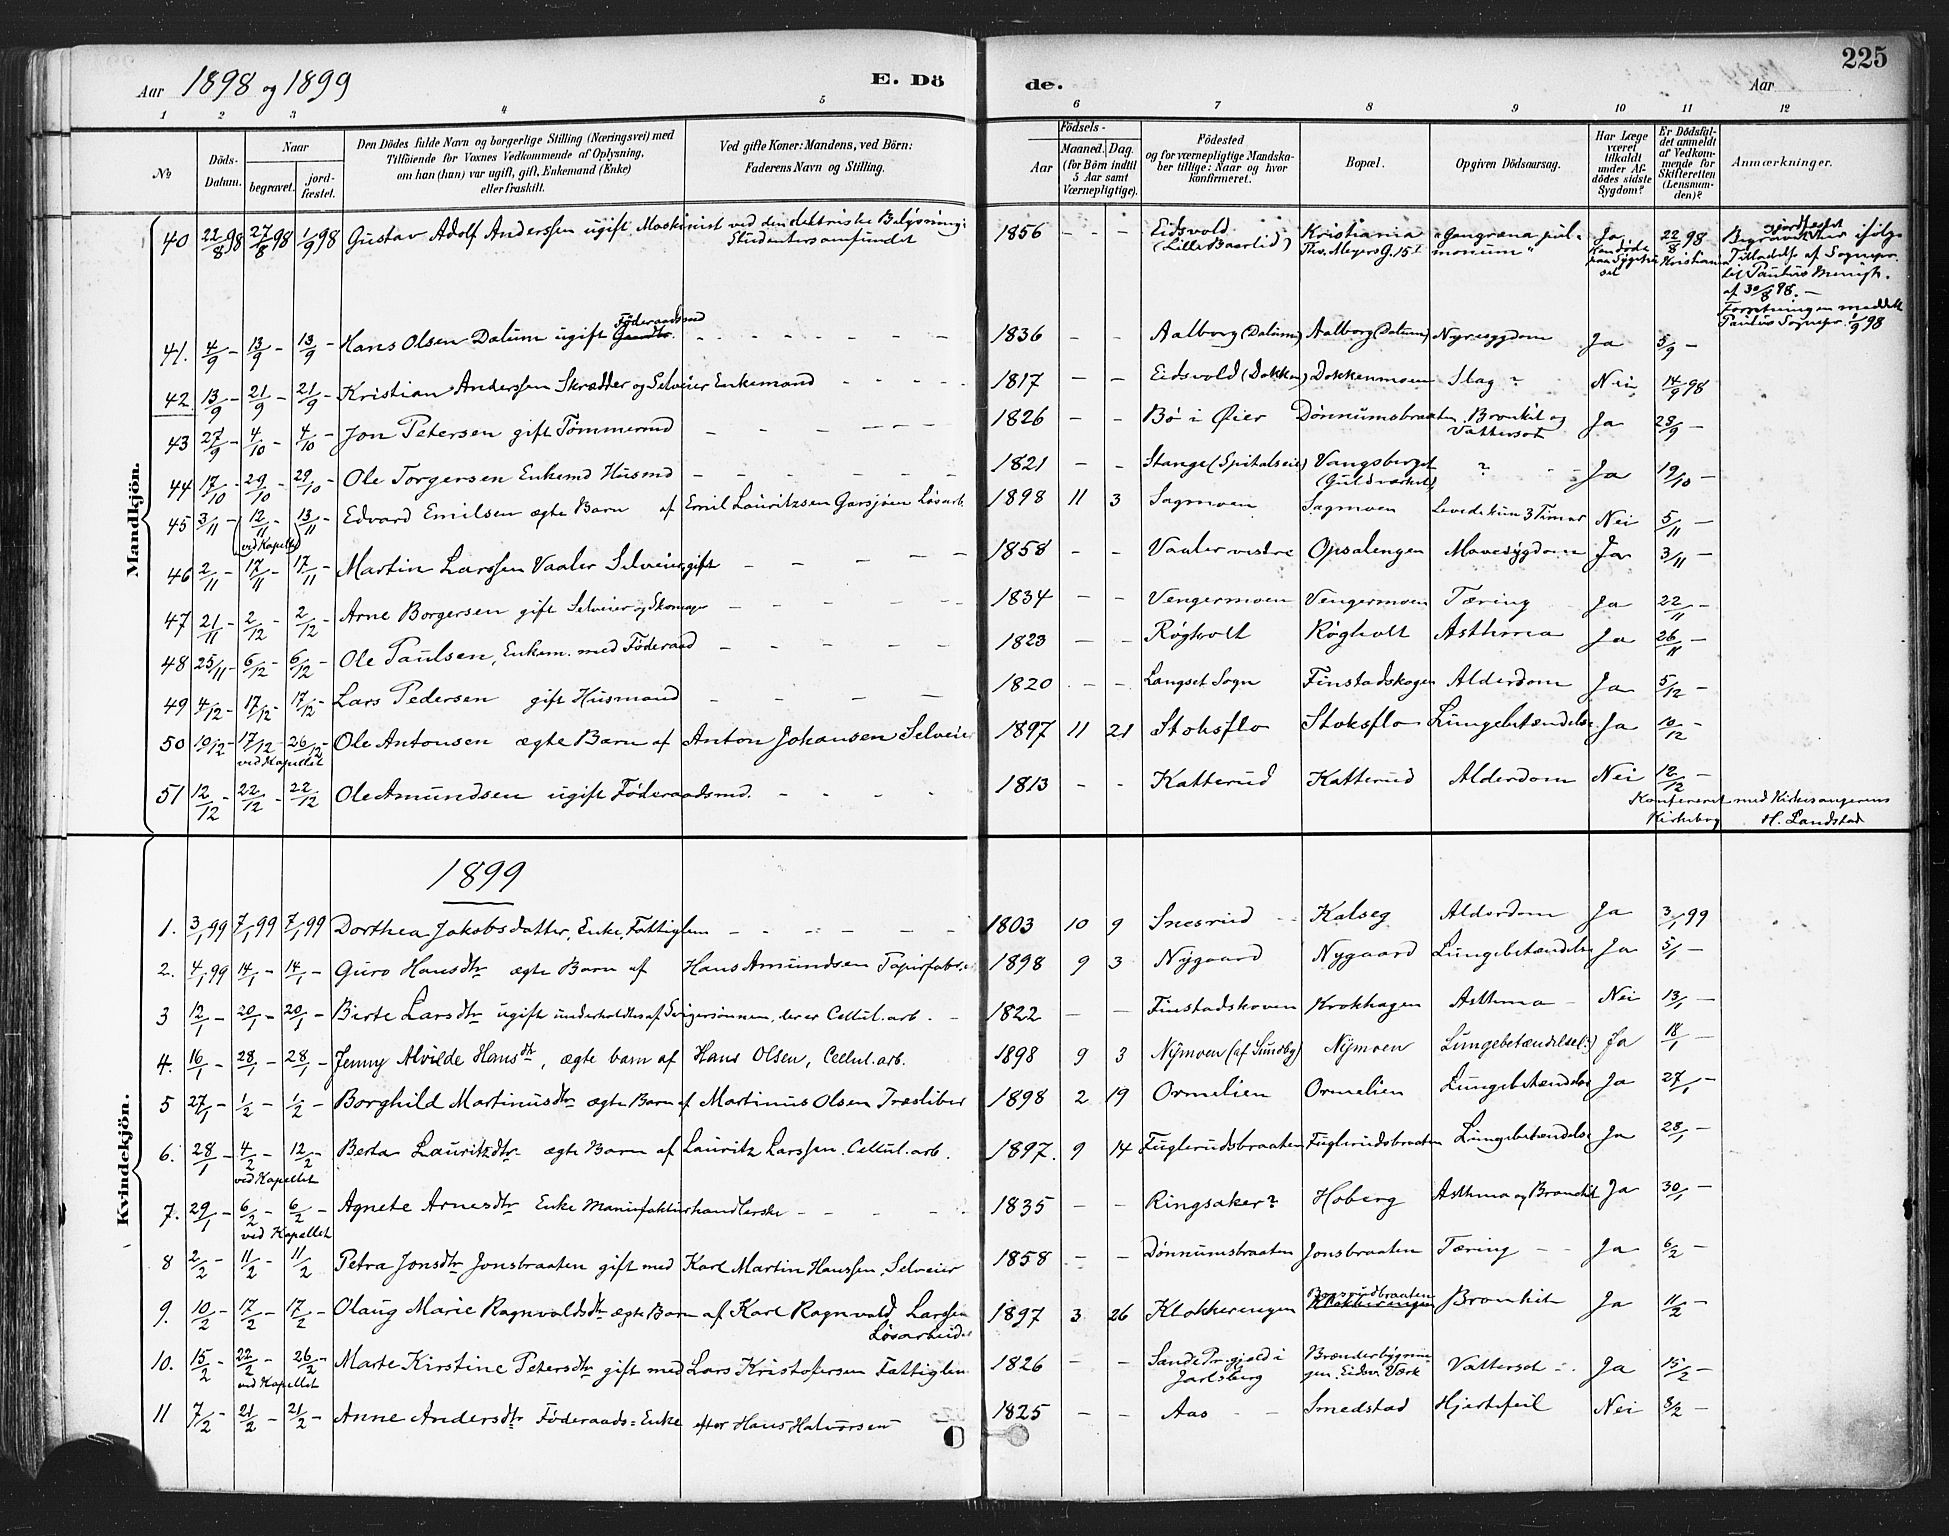 225
Aar 1898 og 1899 E. Dö de. Aar
1 2 3 4 5 6 7 8 9 10 11 12
№ Döds-Datum. Naar begravet. jord-fæstet. Den Dödes fulde Navn og borgerlige Stilling (Næringsvei) med Tilföiende for Voxnes Vedkommende af Oplysning, om han (hun) var ugift, gift, Enkemand (Enke) eller fraskilt. Ved gifte Koner: Mandens, ved Börn: Faderens Navn og Stilling. Födsels- Aar Maaned. Dag. (for Börn indtil 5 Aar samt Værnepligtige). Födested og for værnepligtige Mandska-ber tillige: Naar og hvor konfirmeret. Bopæl. Opgiven Dödsaarsag. Har Læge været tilkaldt under Af-dödes sidste Sygdom? Er Dödsfal-det anmeldt af Vedkom-mende for Skifteretten (Lensman-den)? Anmærkninger.
Mandkjön.
40 22/8 98 27/8 98 1/9 98 Gustav Adolf Anderssen ugift, Maskinist ved den elektriske Belysning i Studentersamfundet 1856 - - - Eidsvold (Lille Baarlid) Kristiania Thv. Meyers G. 15 "Gangræna pul-monum" Ja 22/8 98 Kristiania jordfæstet
af 30/8 98. -
Forretningen meddelt
Paulus Sognepr. 1/9 98
41. 4/9 - 13/9 - 13/9 - Hans Olsen Dalum ugift Föderaadsmd 1836 - - Aalborg (Dalum) Aalborg (Dalum) Nyresygdom Ja 5/9 -
42. 13/9 - 21/9 - 21/9 - Kristian Anderssen Skrædder og Selveier Enkemand 1817 - - Eidsvold (Dokken) Dokkenmoen Slag ? Nei 14/9 98
43 27/9 - 4/10 - 4/10 - Jon Petersen gift Tömmermd 1826 - - Bö i Øier Dönnumsbraaten Bronkit og Vattersot Ja 28/9 -
44 17/10 - 29/10 - 29/10 - Ole Torgersen Enkemd Husmd 1821 - - Stange (Spitalseie) Vangsberget (Guldverket) ? Ja 19/10 -
45 3/11 - 12/11 - (ved Kapellet) 13/11 - Edvard Emilsen ægte Barn af Emil Lauritzsen Garsjöen Lösarb. 1898 11 3 Sagmoen Sagmoen Levede kun 3 Timer Nei 5/11 -
46 2/11 - 17/11 - 17/11 - Martin Larssen Vaaler Selveier gift 1858 - - Vaaler vestre Opsalengen Mavesygdom Ja 3/11 -
47 21/11 2/12 - 2/12 - Arne Borgersen gift Selveier og Skomager 1834 - - Vengermoen Vengermoen Tæring Ja 22/11 -
48 25/11 - 6/12 - 6/12 - Ole Paulsen, Enkem. med Föderaad 1823 - - Rögholt Rögholt Asthma Ja 26/11 -
49 4/12 - 17/12 - 17/12 - Lars Pedersen gift Husmand 1820 - - Langset Sogn Finstadskogen Alderdom Ja 5/12 -
50 10/12 - 17/12 - 26/12 - ved Kapellet Ole Antonsen ægte Barn af Anton Johansen Selveier 1897 11 21 Stoksflo Stoksflo Lungebetændelse Ja 10/12 -
51 12/12 - 22/12 - 22/12 - Ole Amundsen ugift Föderaadsmd. 1813 - - Katterud Katterud Alderdom Nei 12/12 -
Konfereret med Kirkesangerens
Kirkebog H. Landstad
Kvindekjön.
1899
1. 3/1 99 7/1 99 7/1 99 Dorthea Jakobsdatter, Enke, Fattiglem 1803 10 9 Snesrud Kalseg Alderdom Ja 3/1 99
2. 4/1 99 14/1 - 14/1 - Guro Hansdtr ægte Barn af Hans Amundsen Papirfabr. 1898 9 3 Nygaard Nygaard Lungebetændelse Ja 5/1 -
3 12/1 - 20/1 - 20/1 - Birte Larsdtr ugift underholdtes af Svigersönnen, der er Cellul. arb. 1822 - - Finstadskoven Krokhagen Asthma - Nei 13/1 -
4. 16/1 - 28/1 - 28/1 - Jenny Alvilde Hansdtr, ægte barn af Hans Olsen, Cellul. arb. 1898 9 3 Nymoen (af Sundby) Nymoen Lungebetændelse Ja 18/1 -
5 27/1 - 1/2 - 1/2 - Borghild Martinusdtr ægte Barn af Martinus Olsen Træsliber 1898 2 19 Ormelien Ormelien Lungebetændelse Ja 27/1 -
6. 28/1 - 4/2 - 12/2 - ved Kapellet Berta Lauritzdtr ægte Barn af Lauritz Larssen Cellul. arb. 1897. 9 14 Fuglerudsbraaten Fuglerudsbraaten Lungebetændelse Ja 28/1 -
7. 29/1 - 6/2 - 6/2 - ved Kapellet Agnete Arnesdtr Enke Manufakturhandlerske 1835 - - Ringsaker? Hoberg Asthma og Bronkit Ja 30/1 -
8 2/2 - 11/2 - 11/2 Petra Jonsdtr Jonsbraaten gift med Karl Martin Hanssen, Selveier 1858 - - Dönnumsbraaten Jonsbraaten Tæring - - Ja 6/2 -
9. 10/2 - 17/2 - 17/2 - Olaug Marie Ragnvaldsdtr ægte Barn af Karl Ragnvald Larssen Lösarbeider 1897 3 26 Klokkerengen Klokkerengen Bronkit Ja 11/2 -
10. 15/2 - 22/2 - 26/2 - ved Kapellet Marte Kirstine Petersdtr gift med Lars Kristofersen Fattiglem 1826 - - Sande Pr.gjeld i Jarlsberg Brænderbygnin-gen. Eidsv. Værk Vattersot Ja 15/2 -
11 7/2 - 21/2 - 21/2 - Anne Andersdtr Föderaads-Enke efter Hans Halvorsen 1825 - - Aas Smedstad Hjertefeil Nei 8/2 -